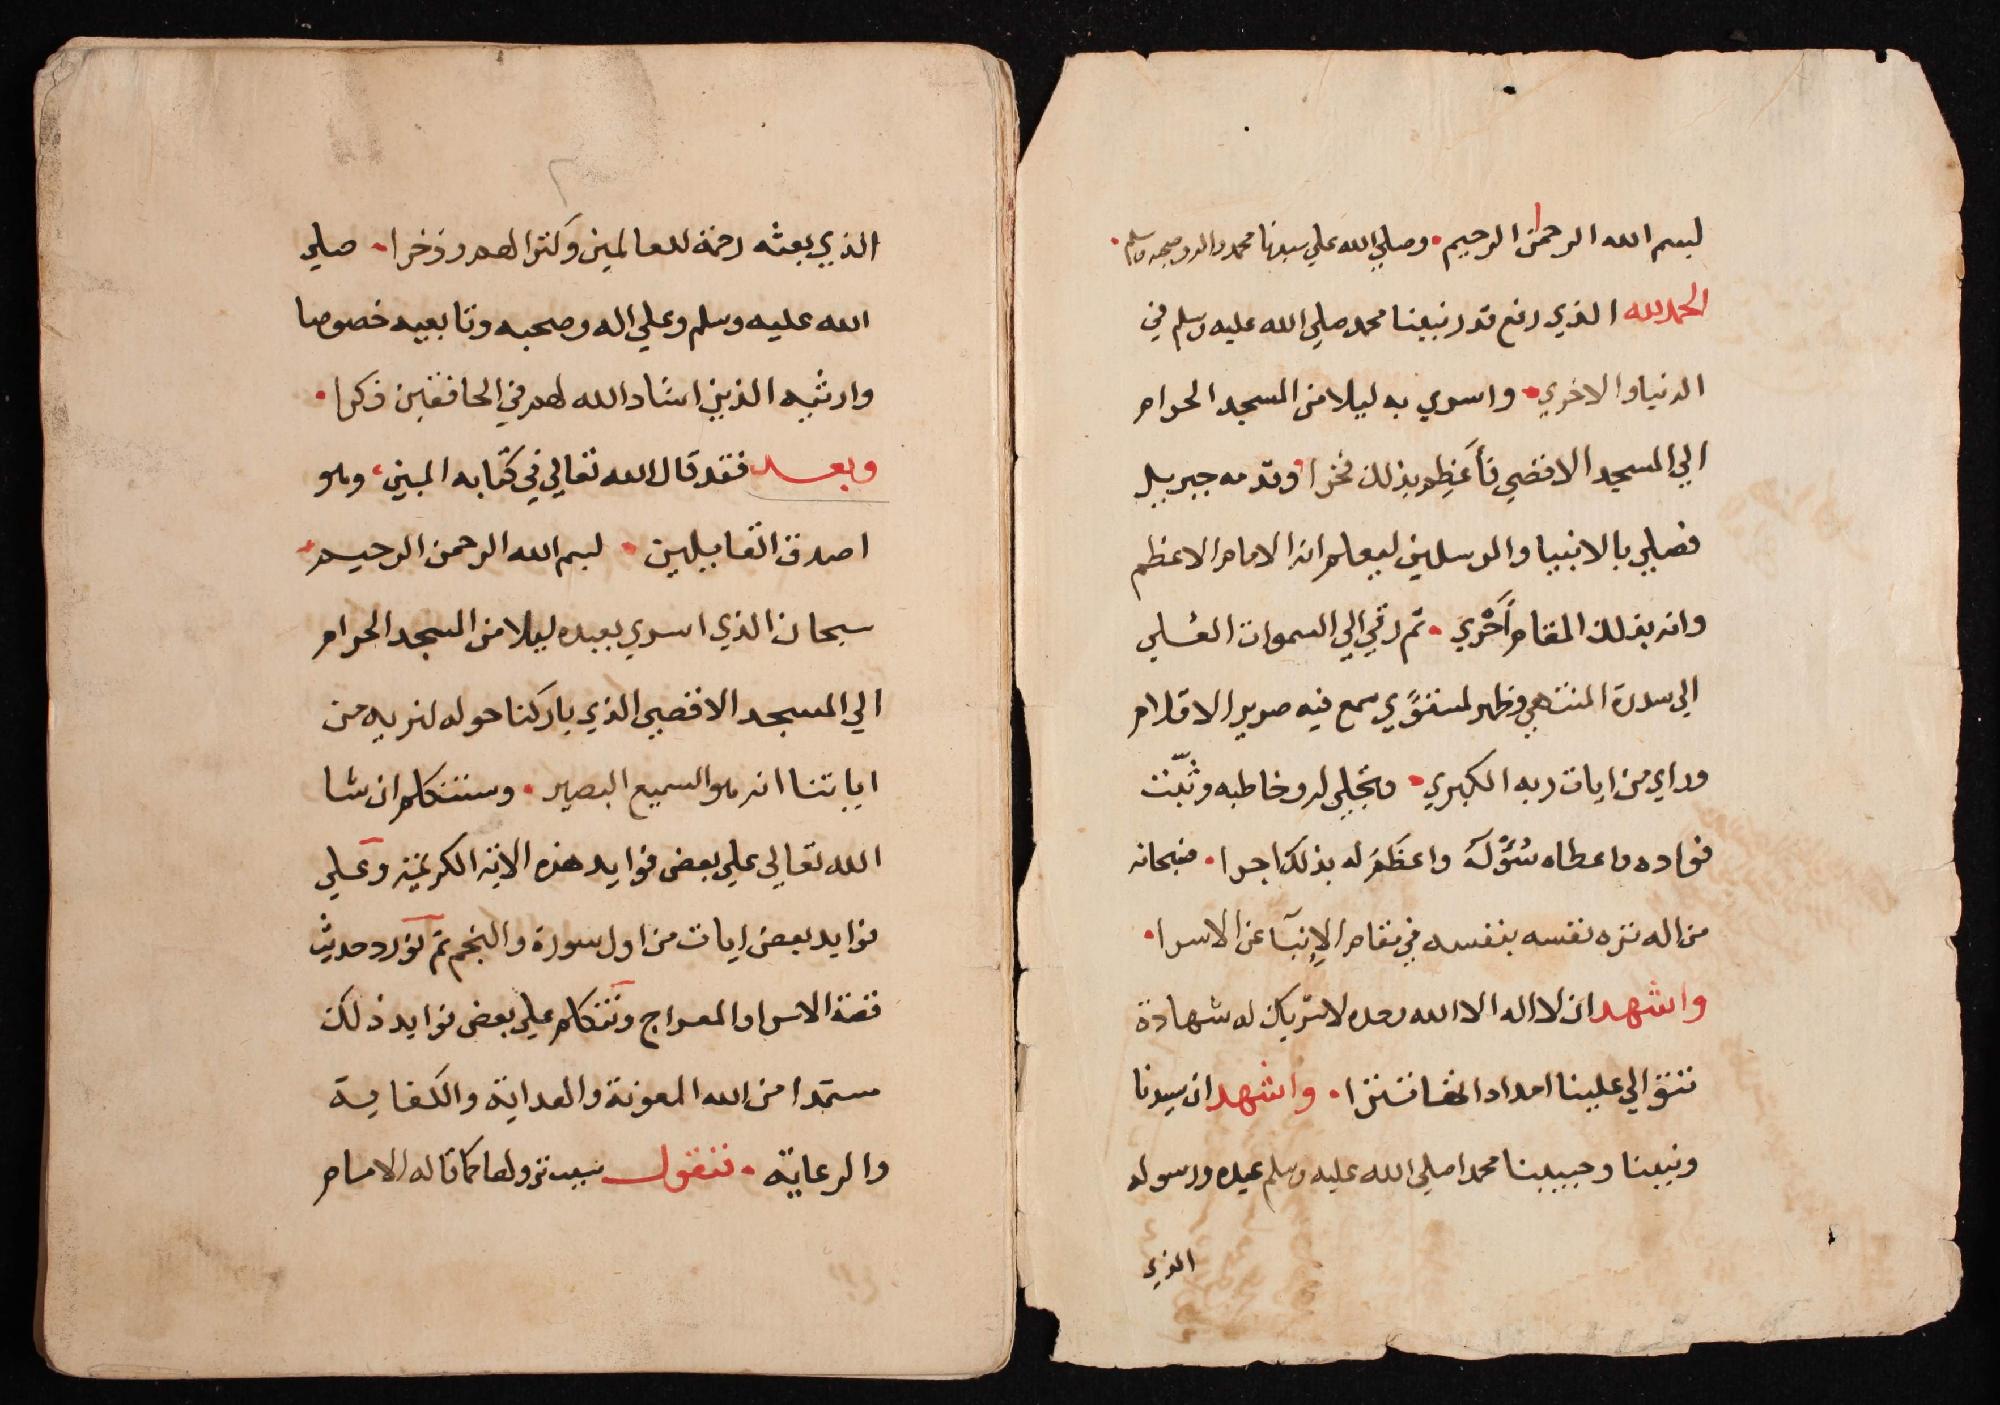 لبسم الله الرحمن الرحيم وصلي الله علي سيدنا محمد واله وصحبه وسلم
الحمد لله الذي رفع قدر نبينا محمد صلي الله عليه وسلم في
الدنيا والاخري واسري به ليلا من المسجد الحرام
الي المسجد الاقصي فأعظِم بذلك فخرا وقدمه جبريل
فصلي بالانبيا والمرسلين ليعلم انه الامام الاعظم
وانه بذلك المقام أَحْري ثم رقي الي السموات العُلي
الي سدرة المنتهي وظهر لمستوًي سمع فيه صرير الاقلام
وراي من ايات ربه الكبري وتجلي له وخاطبه وثبّت
فواده واعطاه سُؤْلَهُ واعظَمَ له بذلك اجرا فسبحانه
من اله نزه نفسه بنفسه في مقام الإنبآ عن الاسرا
واشهد ان لا اله الا الله وحده لا شريك له شهادة
تتوالي علينا امدادا تترا واشهد ان سيدنا
ونبينا وحبيبنا محمدا صلي الله عليه وسلم عبده ورسوله
الذي
الذي بعثه رحمة للعالمين وكنزا لهم وذخرا صلي
الله عليه وسلم وعلي اله وصحبه وتابعيه خصوصا
وارثيه الذين اشاد الله لهم في الخافقين ذكرا
وبعد فقد قال الله تعالي في كتابه المبين وهو
اصدق القايلين لبسم الله الرحمن الرحيم
سبحان الذي اسري بعبده ليلا من المسجد الحرام
الي المسجد الاقصي الذي باركنا حوله لنريه من
اياتنا انه هو السميع البصير وسنتكلم ان شا
الله تعالي علي بعض فوايد هذه الاية الكريمة وعلي
فوايد بعض ايات من اول سورة والنجم ثم نورد حديث
قصة الاسرا والمعراج ونتكلم علي بعض فوايد ذلك
مستمدا من الله المعونة والهداية والكفاية
والرعاية فنقول سبب نزولها كما قاله الامام